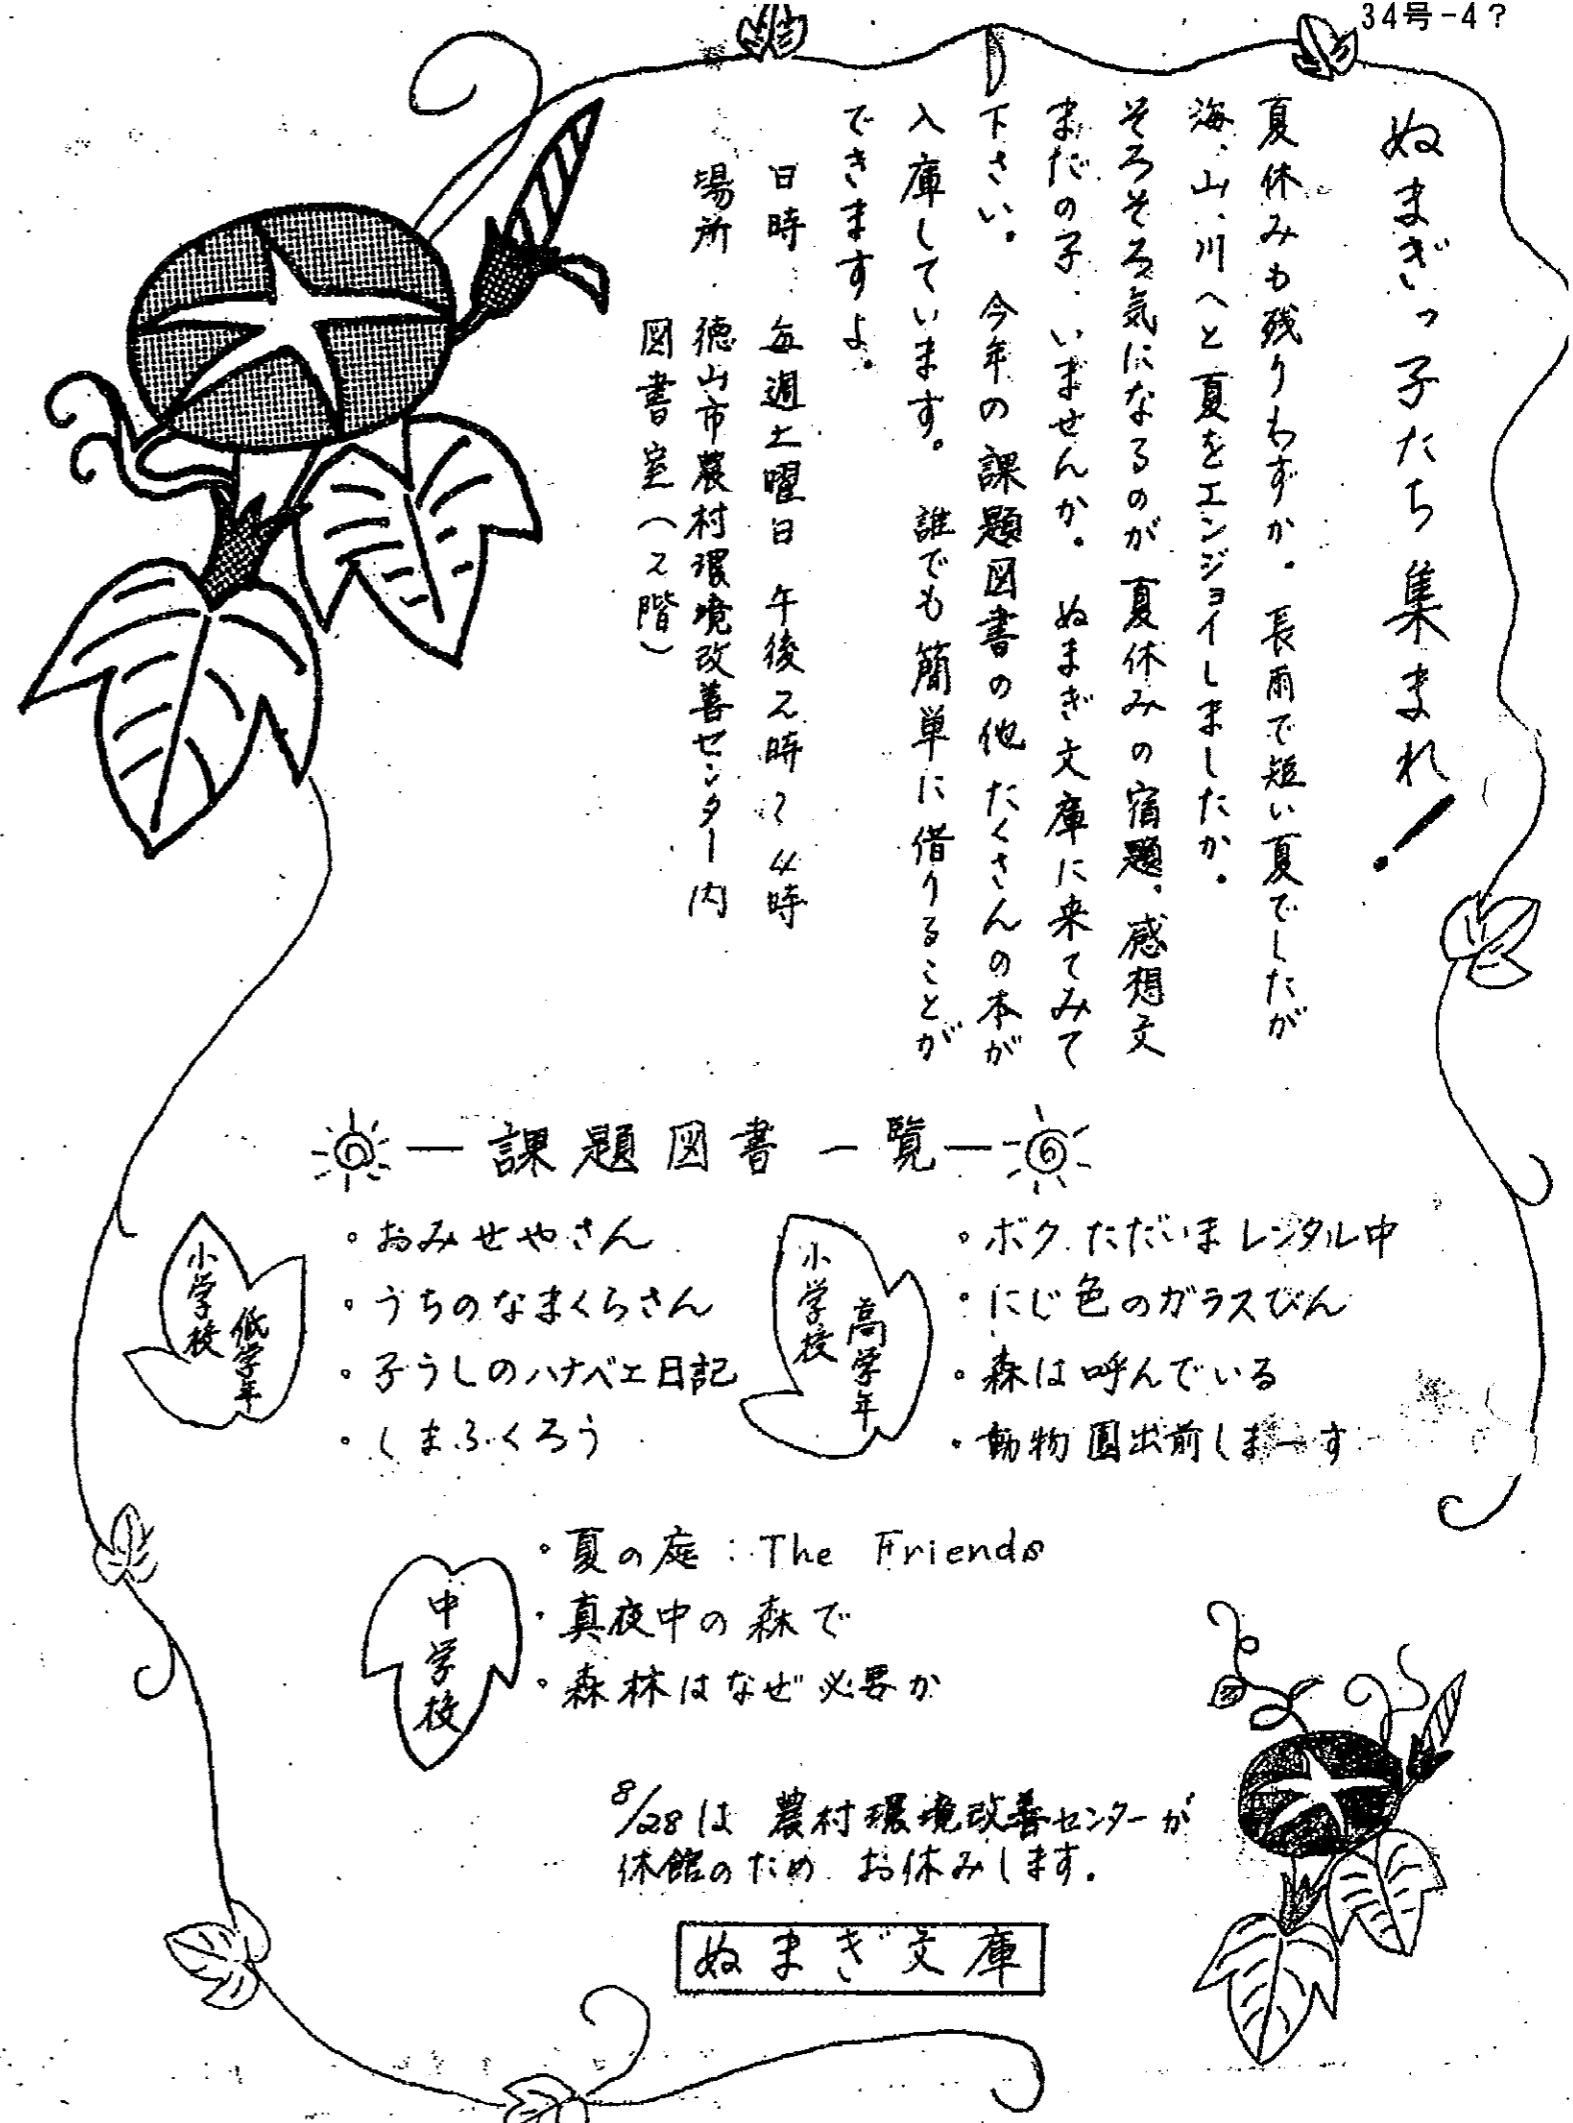 34号-4?
ぬまぎっ子たち集まれ!
夏休みも残りわずか。長雨で短い夏でしたが
海、山、川へと夏をエンジョイしましたか。
そろそろ気になるのが夏休みの宿題。感想文
まだの子、いませんか。ぬまぎ文庫に来てみて
下さい。今年の課題図書の他たくさんの本が
入庫しています。誰でも簡単に借りることが
できますよ。
日時 毎週土曜日 午後2時〜4時
場所 徳山市農村環境改善センター内
図書室(2階)
―課題図書一覧―
小学校
低学年
・おみせやさん
・うちのなまくらさん
・子うしのハナベエ日記
・しまふくろう
小学校
高学年
・ボクただいまレンタル中
・にじ色のガラスびん
・森は呼んでいる
・動物園出前しまーす
中学校
・夏の庭:The Friends
・真夜中の森で
・森林はなぜ必要か
8/28は 農村環境改善センターが
休館のため お休みします.
ぬまぎ文庫